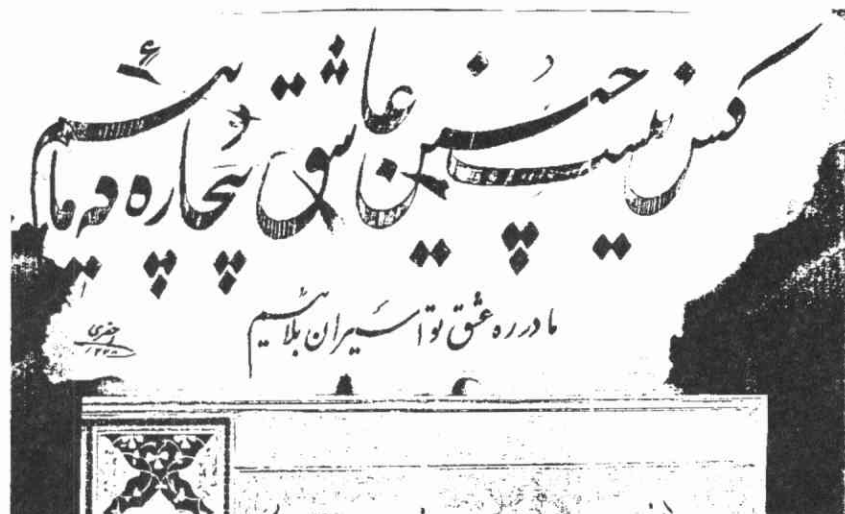 کس نیست چنین عاشق بیچاره که مائیم
ما در ره عشق تو اسیران بلائیم
جعفری